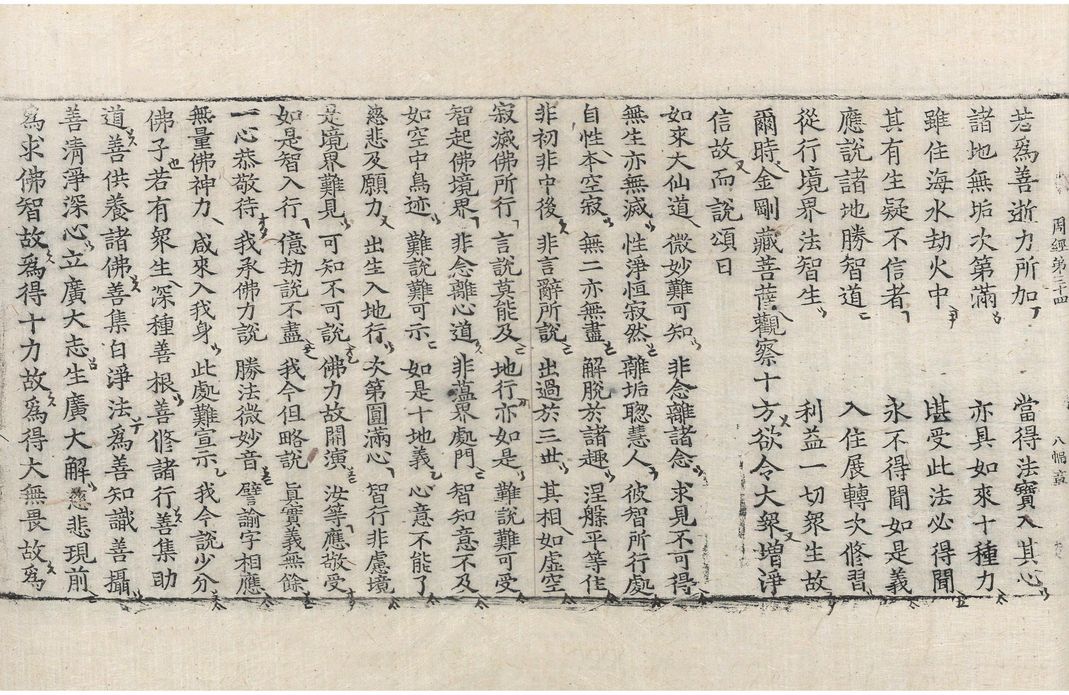 周經第三十四　八幅
若爲善逝力所加　當得法寶入其心
諸地無垢次第滿　亦具如來十種力
雖住海水劫火中　堪受此法必得聞
其有生疑不信者　永不得聞如是義
應說諸地勝智道　入住展轉次修習
從行境界法智生　利益一切衆生故
爾時金剛藏菩薩觀察十方欲令大衆增淨
信故而說頌曰
如來大仙道　微妙難可知　非念離諸念　求見不可得
無生亦無滅　性淨恒寂然　離垢聰慧人　彼智所行處
自性本空寂　無二亦無盡　解脫於諸趣　涅槃平等住
非初非中後　非言辭所說　出過於三世　其相如虛空
寂滅佛所行　言說莫能及　地行亦如是　難說難可受
智起佛境界　非念離心道　非蘊界處門　智知意不及
如空中鳥迹　難說難可示　如是十地義　心意不能了
慈悲及願力　出生入地行　次第圓滿心　智行非慮境
是境界難見　可知不可說　佛力故開演　汝等應敬受
如是智入行　億劫說不盡　我今但略說　眞實義無餘
一心恭敬待　我承佛力說　勝法微妙音　譬諭字相應
無量佛神力　咸來入我身　此處難宣示　我今說少分
佛子若有衆生深種善根善修諸行善集助
道善供養諸佛善集白淨法爲善知識善攝
善清淨深心立廣大志生廣大解慈悲現前
爲求佛智故爲得十力故爲得大無畏故爲